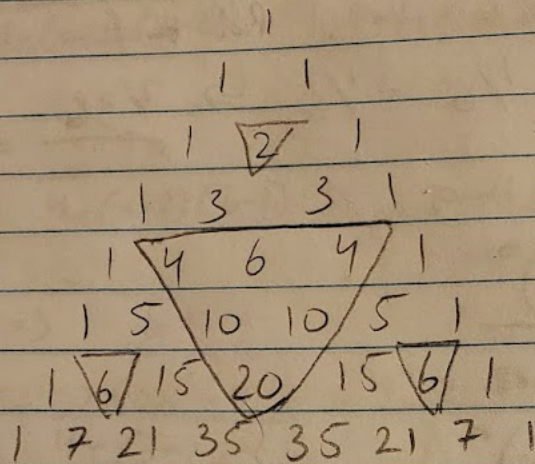 1
1 1
1 2 1
1 3 3 1
1 4 6 4 1
1 5 10 10 5 1
1 6 15 20 15 6 1
1 7 21 35 35 21 7 1